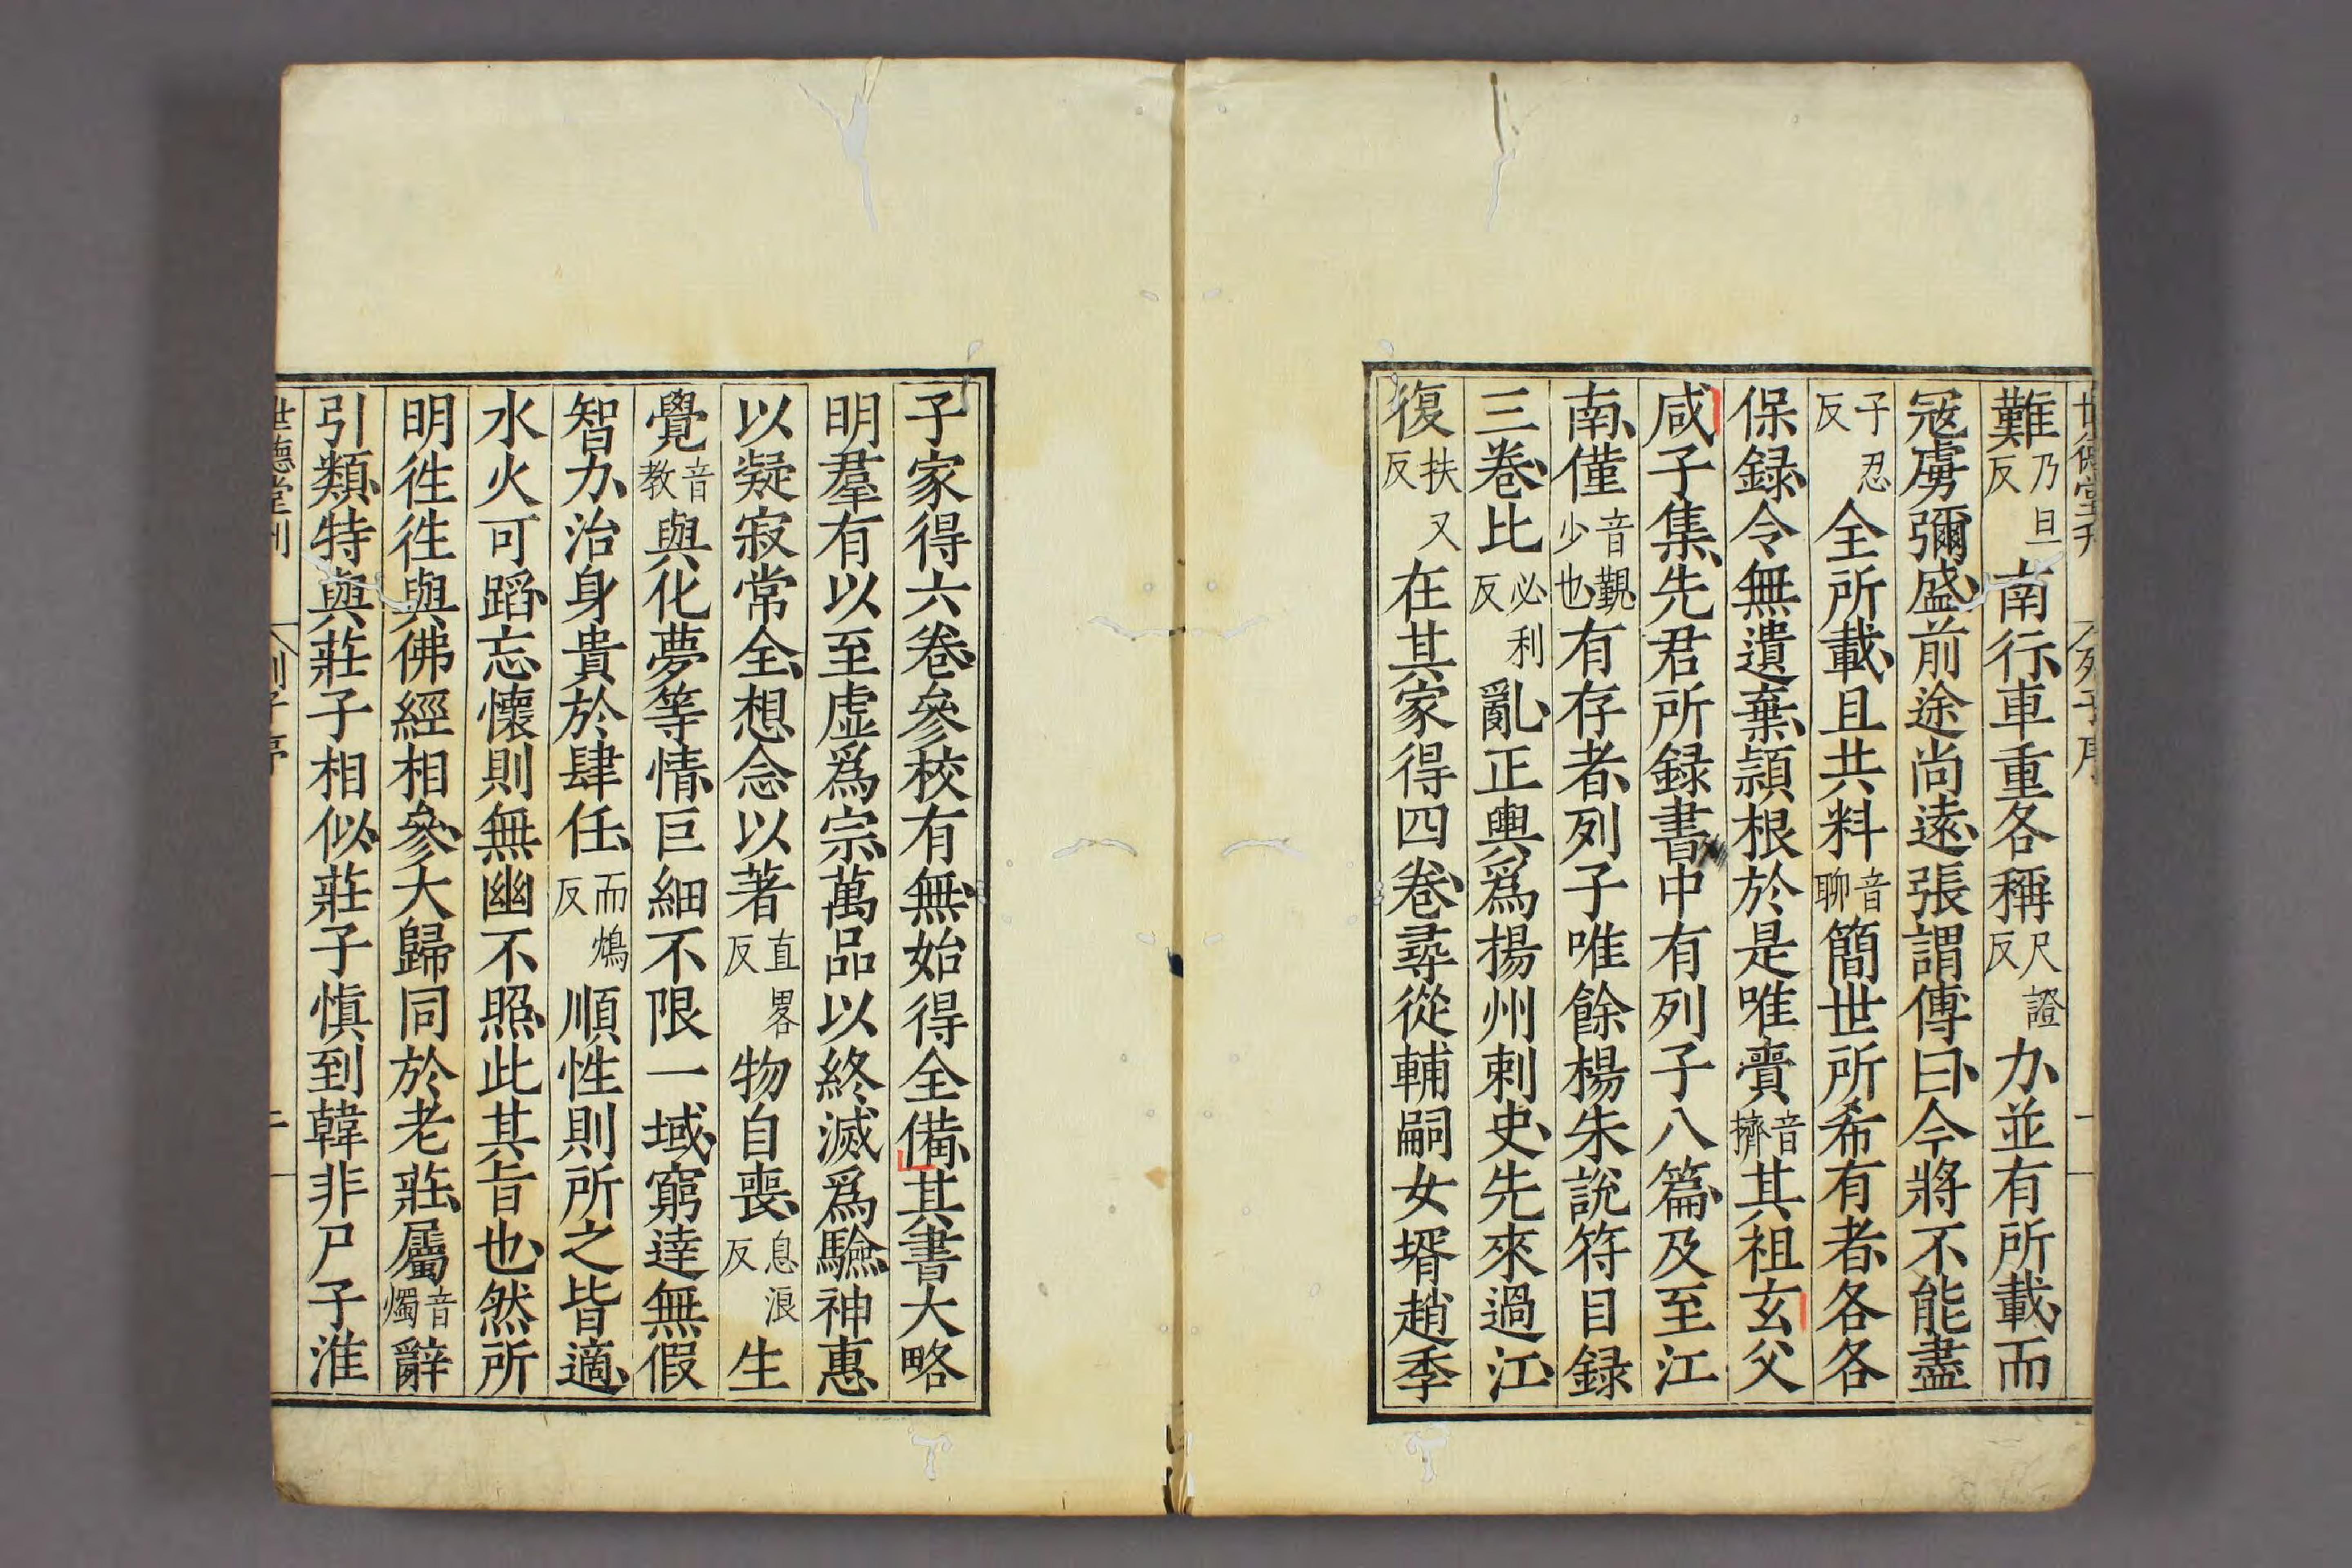 世德堂刊 列子序 一
難乃旦反南行車重各稱尺證反力並有所載而
寇虜彌盛前途尚遠張謂傅曰今將不能盡
子忍反全所載且共料音聊簡世所希有者各各
保録令無遺棄頴根於是唯賫音擠其祖玄父
咸子集先君所録書中有列子八篇及至江
南僅音覲少也有存者列子唯餘楊朱說符目録
三卷比必利反亂正輿爲揚州刺史先來過江
復扶又反在其家得四卷尋從輔嗣女壻趙季
子家得六卷參校有無始得全備其書大略
明羣有以至虛爲宗萬品以終滅爲驗神惠
以凝寂常全想念以著直畧反物自喪息浪反生
覺音教與化夢等情巨細不限一域窮達無假
智力治身貴於肆任而鴆反順性則所之皆適
水火可蹈忘懷則無幽不照此其旨也然所
明徃徃與佛經相參大歸同於老莊屬音燭辭
引類特與莊子相似莊子愼到韓非尸子淮
世德堂刊 列子序